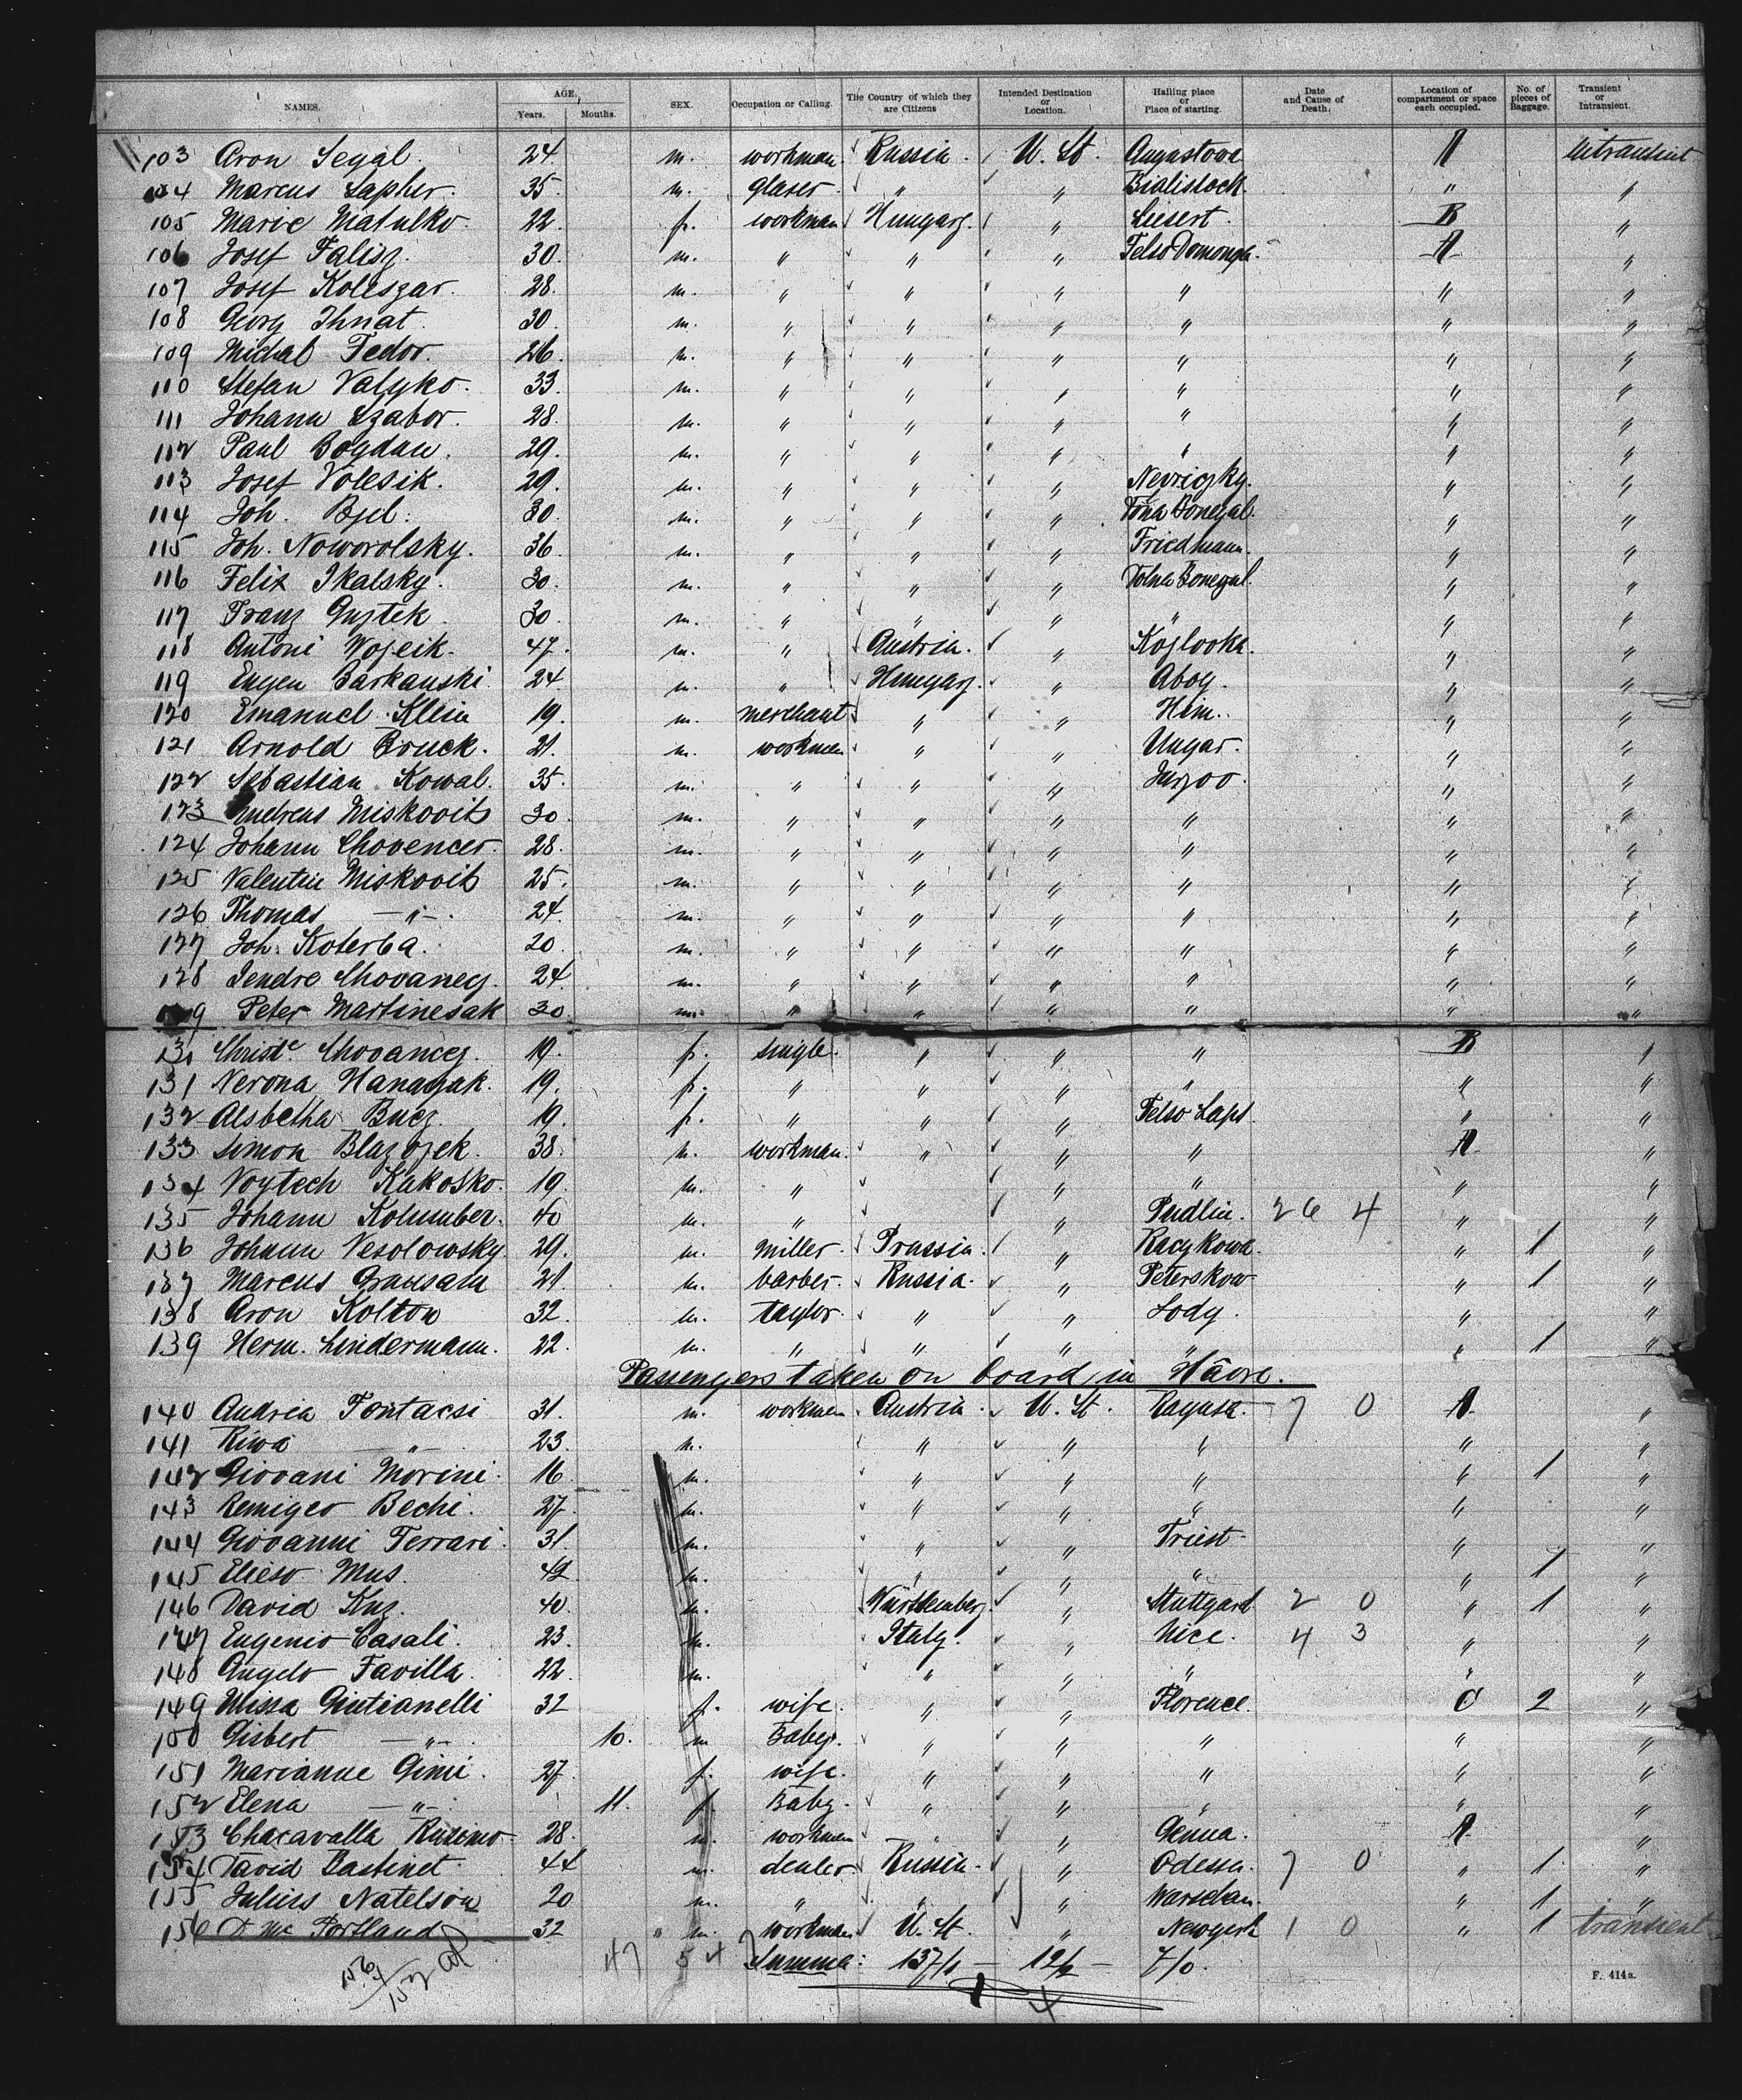 NAMES. AGE, Years. Months. SEX. Occupation or Calling. The Country of which they are Citizens Intended Destination or Location. Hailing place or Place of starting. Date and Cause of Death. Location of compartment or space each occupied. No. of pieces of Baggage. Transient or Intransient.
103 Aron Segal. 24. m. workman. Russia. U. St. Augustowa A intransient
104 Marcus Sapher. 35. m. glaser. " " Bialistock. " "
105 Marie Matulko. 22. f. workman Hungary. " Siesert. B "
106 Josef Falisz. 30. m. " " " Felso Domonya. A "
107 Josef Koleszar. 28. m. " " " " " "
108 Georg Ihnat. 30. m. " " " " " "
109 Michal Fedor. 26. m. " " " " " "
110 Stefan Valyko. 33. m. " " " " " "
111 Johann Szabor. 28. m. " " " " " "
112 Paul Bogdan. 29. m. " " " " " "
113 Josef Volesik. 29. m. " " " Nevriczky. " "
114 Joh. Bjel. 30. m. " " " Tolna Donegal. " "
115 Joh. Noworolsky. 36. m. " " " Friedmann. " "
116 Felix Skalsky. 30. m. " " " Tolna Donegal. " "
117 Franz Gustek. 30. m. " " " " " "
118 Antoni Wojcik. 47. m. " Austria. " Kojlooka. " "
119 Eugen Barkanski. 24. m. " Hungary. " Aboy. " "
120 Emanuel Klein 19. m. merchant " " Him. " "
121 Arnold Bruck. 21. m. workman " " Ungar. " "
122 Sebastian Kowal. 35. m. " " " Jurgoo. " "
123 Andreas Miskovits 30. m. " " " " " "
124 Johann Chovencer. 28. m. " " " " " "
125 Valentin Miskovits 25. m. " " " " " "
126 Thomas —"—. 24. m. " " " " " "
127 Joh. Koterba. 20. m. " " " " " "
128 Jendre Chovanecz. 24. m. " " " " " "
9 Peter Martinesak 30. m. " " " " " "
Christe Chovanecz. 19. f. single. " " " B "
131 Verona Hanayak. 19. f. " " " " " "
132 Alsbetha Bucz. 19. f. " " " Felso Laps. " "
133 Simon Blazojek. 38. m. workman. " " " A "
134 Voytech Kakosko. 19. m. " " " " "
135 Johann Kolumber. 40 m. " " Pudlin. 26 4 " "
136 Johann Vesolowsky. 29. m. miller. Prussia. " Raczkowa. " 1 "
137 Marcus Grausam 21. m. barber. Russia. " Peterskow " 1 "
138 Aron Kolton 32. m. taylor. " " Lody. " "
139 Herm. Lindermann. 22. m. " " " " " 1 "
Passengers taken on board in Hâvre.
140 Andrea Fontacsi 31. m. workman Austria. U. St. Ragusa. 7 0 A "
141 Riwa —"— 23. m. " " " " "
142 Giovani Morini. 16. m. " " " " 1 "
143 Remigeo Bechi. 27. m. " " " " "
144 Giovanni Ferrari. 31. m. " " Triest. " "
145 Elieso Mus. 42. m. " " " " 1 "
146 David Kuz. 40. m. Württemberg. " Stuttgard 2 0 " 1 "
147 Eugenio Casali. 23. m. Italy. " Nice. 4 3 " "
148 Angelo Favilla. 22. m. " " " " "
149 Ulissa Giutianelli 32 f. wife. " " Florence. C 2 "
150 Gisbert —"—. 10. m Baby. " " " " "
151 Marianne Gini. 27. f. wife. " " " " "
152 Elena —"—. 11. f. Baby. " " " " "
153 Chacavalla Rusimo 28. m. workman " " Genua. A "
154 David Bastinet. 44 m. dealer Russia. " Odessa. 7 0 " 1. "
155 Juliuss Natelson 20 m. " " " Warschau. " 1 "
156 Mc Portland 32 " m. workman U. St. " Newyork 1 0 " 1 transient
47 54 Summa: 137/1 — 12/2 — 7/0.
156/4
152
4
F. 414a.